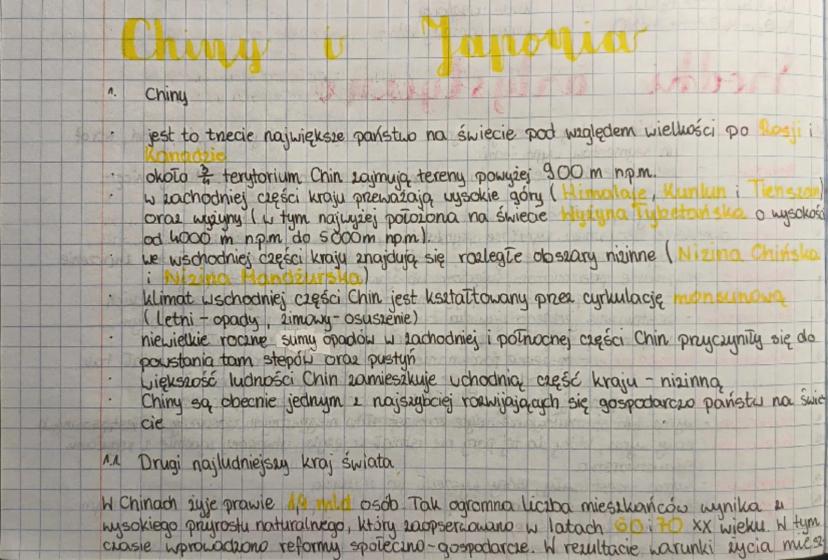 Chiny i Japonia
1. Chiny
· jest to trzecie największe państwo na świecie pod względem wielkości po Rosji i
Kanadzie
· około 3/4 terytorium Chin zajmują tereny powyżej 900 m n.p.m.
· w zachodniej części kraju przeważają wysokie góry (Himalaje, Kunlun i Tienszan)
oraz wyżyny (w tym najwyżej położona na świecie Wyżyna Tybetańska o wysokość
od 4000 m n.p.m do 5000m npm).
· we wschodniej części kraju znajdują się rozległe obszary nizinne (Nizina Chińska
i Nizina Mandżurska)
· klimat wschodniej części Chin jest kształtowany przez cyrkulację monsunową
(letni - opady, zimowy - osuszenie)
· niewielkie roczne sumy opadów w zachodniej i północnej części Chin przyczyniły się do
powstania tam stepów oraz pustyń
· większość ludności Chin zamieszkuje wchodnią część kraju - nizinną
· Chiny są obecnie jednym z najszybciej rozwijających się gospodarczo państw na świe
cie
1.1 Drugi najludniejszy kraj świata
W Chinach żyje prawie 1,4 mld osób Tak ogromna liczba mieszkańców wynika z
wysokiego przyrostu naturalnego, który zaopserwowano w latach 60 i 70 XX wieku. W tym
czasie wprowadzono reformy społeczno-gospodarcze. W rezultacie warunki życia miesz